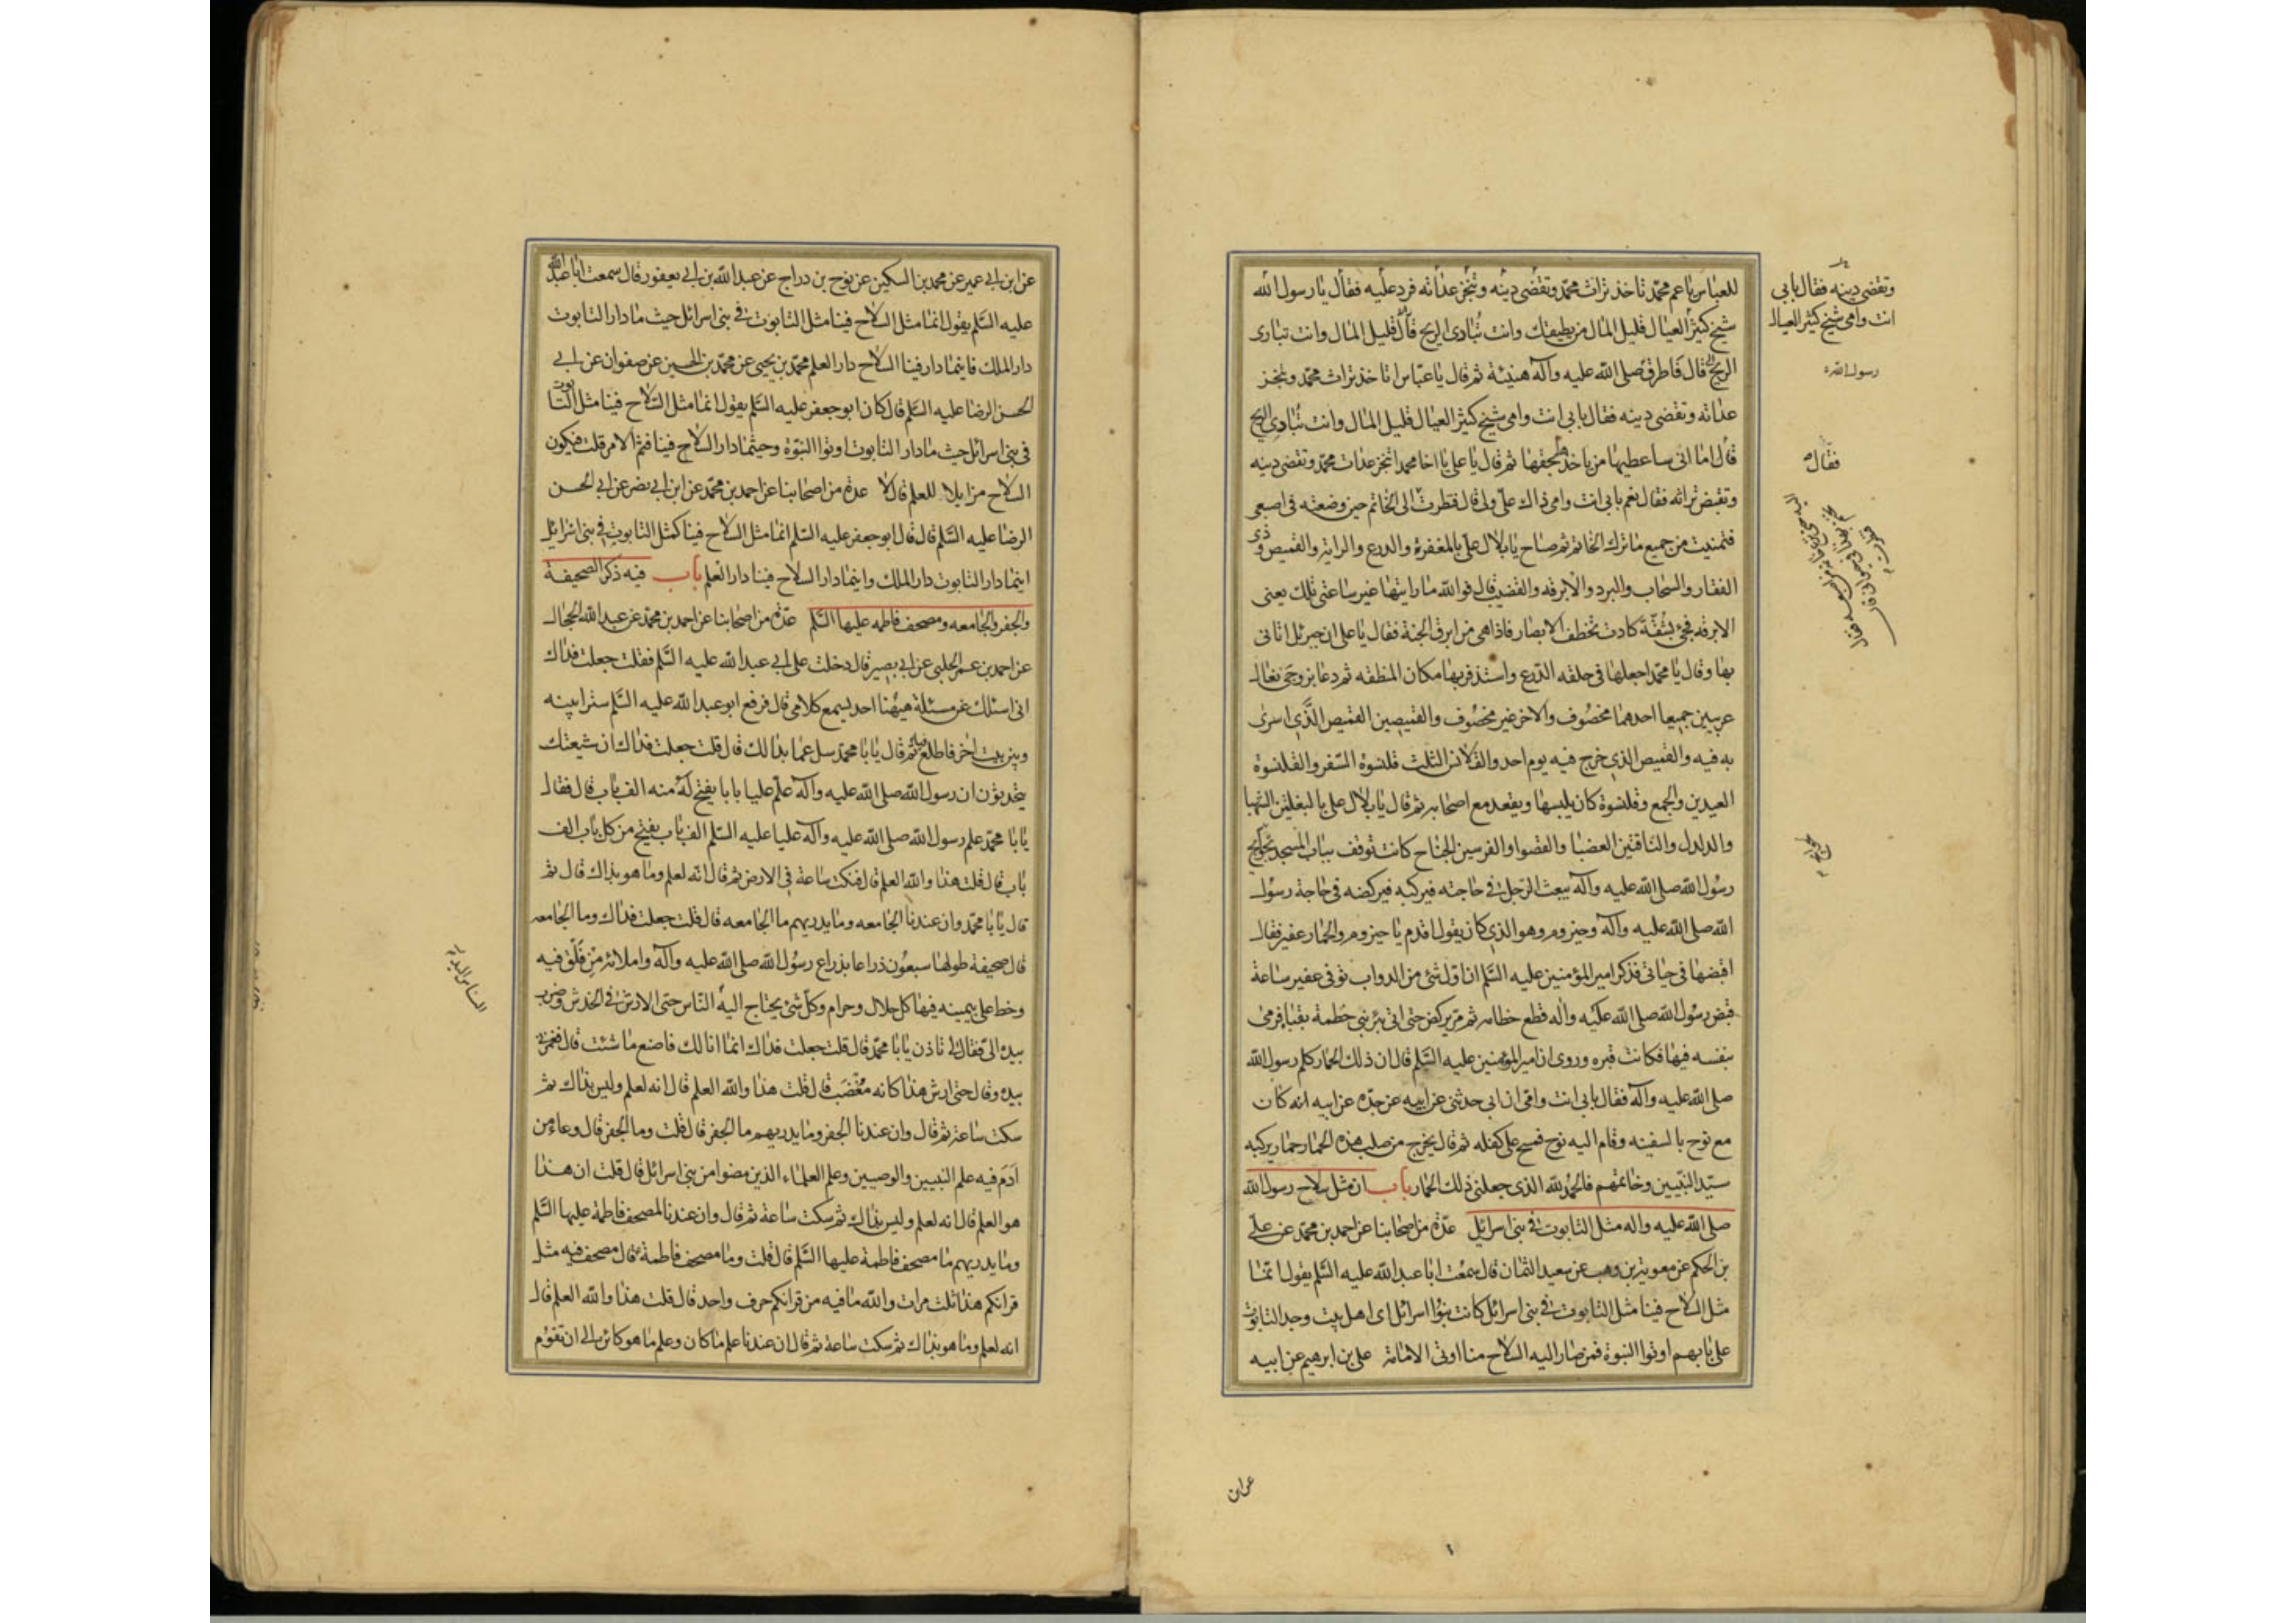 للعباس يا عم محمد تاخذ تراث محمد وتقضى دينه وتنجز عداته فرد عليه فقال يا رسول الله
شيخ كثير العيال قليل المال من يطيقك وانت تبارى الريح قال قليل المال وانت تبارى
الريح قال فاطرق صلى الله عليه وآله هنيئة ثم قال يا عباس اتاخذ تراث محمد وتنجز
عداته وتقضى دينه فقال بابى انت وامى شيخ كثير العيال قليل المال وانت تبارى الريح
قال اما انى ساعطيها من ياخذها بحقها ثم قال يا على يا اخا محمد اتنجز عدات محمد وتقضى دينه
وتقبض تراثه فقال نعم بابى انت وامى ذاك على ولى قال فنظرت الى الخاتم حين وضعته فى اصبعى
فتمنيت من جميع ما ترك الخاتم ثم صاح يا بلال على بالمغفرة والدرع والراية والقميص وذى
الفقار والسحاب والبرد والابرقه والقضيب قال فوالله ما رايتها غير ساعتى تلك يعنى
الابرقه فجئ بشقة كادت تخطف الابصار فاذا هى من ابرق الجنة فقال يا على ان جبرئل اتانى
بها وقال يا محمد اجعلها فى حلقه الدرع واستذفر بها مكان المنطقه ثم دعا بزوجى نعال
عربيين جميعا احدهما مخصوف والاخر غير مخصوف والقميصين القميص الذى اسرى
به فيه والقميص الذى خرج فيه يوم احد والقلانس الثلث قلنسوة السفر والقلنسوة
العيدين والجمع وقلنسوة كان يلبسها ويقعد مع اصحابه ثم قال يا بلال على بالبغلتين الشهبا
والدلدل والناقتين العضبا والقصوا والفرسين الجناح كانت توقف بباب المسجد لحوايج
رسول الله صلى الله عليه وآله يبعث الرجل فى حاجته فيركبه فيركضه فى حاجة رسول
الله صلى الله عليه وآله وحيزوم وهو الذى كان يقول اقدم يا حيزوم والحمار عفير فقال
اقبضها فى حياتى فذكر امير المؤمنين عليه السلم ان اول شئ من الدواب توفى عفير ساعة
قبض رسول الله صلى الله عليه واله قطع خطامه ثم مر يركض حتى اتى بئر بنى خطمة بقبا فرمى
بنفسه فيها فكانت قبره وروى ان امير المؤمنين عليه السلم قال ان ذلك الحمار كلم رسول الله
صلى الله عليه وآله فقال بابى انت وامى ان ابى حدثنى عن ابيه عن جده عن ابيه انه كان
مع نوح بالسفينه وقام اليه نوح فمسح على كفله ثم قال يخرج من صلب هذه الحمار حمار يركبه
سيد النبيين وخاتمهم فالحمد لله الذى جعلنى ذلك الحمار باب ان مثل سلاح رسول الله
صلى الله عليه واله مثل التابوت فى بنى اسرائل عدة من اصحابنا عن احمد بن محمد عن على
بن الحكم عن معوية بن وهب عن سعيد السمان قال سمعت ابا عبد الله عليه السلم يقول انما
مثل السلاح فينا مثل التابوت فى بنى اسرائل كانت بنوا اسرائل اى اهل بيت وجد التابوت
على بابهم اوتوا النبوة فمن صار اليه السلاح منا اوتى الامامة على بن ابرهيم عن ابيه
وتقضى دينه فقال بابى
انت وامى شيخ كثير العيال
رسول الله
فقال
عن ابن ابى عمير عن محمد بن السكين عن نوح بن دراج عن عبد الله بن ابى يعفور قال سمعت ابا عبد الله
عليه السلم يقول انما مثل السلاح فينا مثل التابوت فى بنى اسرائل حيث ما دار التابوت
دار الملك فاينما دار فينا السلاح دار العلم محمد بن يحيى عن محمد بن الحسين عن صفوان عن ابى
الحسن الرضا عليه السلم قال كان ابو جعفر عليه السلم يقول انما مثل السلاح فينا مثل التابوت
فى بنى اسرائل حيث ما دار التابوت اوتوا النبوة وحيثما دار السلاح فينا فثم الامر قلت فيكون
السلاح مزايلا للعلم قال لا عدة من اصحابنا عن احمد بن محمد عن ابن ابى نصر عن ابى الحسن
الرضا عليه السلم قال قال ابو جعفر عليه السلم انما مثل السلاح فينا كمثل التابوت فى بنى اسرائل
اينما دار التابوت دار الملك واينما دار السلاح فينا دار العلم باب فيه ذكر الصحيفة
والجفر والجامعه ومصحف فاطمه عليها السلم عدة من اصحابنا عن احمد بن محمد عن عبد الله الحجال
عن احمد بن عمر الحلبى عن ابى بصير قال دخلت على ابى عبد الله عليه السلم فقلت جعلت فداك
انى اسئلك عن مسئلة هيهنا احد يسمع كلامى قال فرفع ابو عبد الله عليه السلم سترا بينه
وبين بيت اخر فاطلع فيه ثم قال يا با محمد سل عما بدا لك قال قلت جعلت فداك ان شيعتك
يتحدثون ان رسول الله صلى الله عليه وآله علم عليا بابا يفتح له منه الف باب قال فقال
يا با محمد علم رسول الله صلى الله عليه وآله عليا عليه السلم الف باب يفتح من كل باب الف
باب قال قلت هذا والله العلم قال فنكت ساعة فى الارض ثم قال انه لعلم وما هو بذاك قال ثم
قال يا با محمد وان عندنا الجامعه وما يدريهم ما الجامعه قال قلت جعلت فداك وما الجامعه
قال صحيفة طولها سبعون ذراعا بذراع رسول الله صلى الله عليه وآله واملائه من فلق فيه
وخط على بيمينه فيها كل حلال وحرام وكل شئ يحتاج اليه الناس حتى الارش فى الخدش وضرب
بيده الى فقال لى تاذن يا با محمد قال قلت جعلت فداك انما انا لك فاصنع ما شئت قال فغمزنى
بيده وقال حتى ارش هذا كانه مغضب قال قلت هذا والله العلم قال انه لعلم وليس بذاك ثم
سكت ساعة ثم قال وان عندنا الجفر وما يدريهم ما الجفر قال قلت وما الجفر قال وعاء من
ادم فيه علم النبيين والوصيين وعلم العلماء الذين مضوا من بنى اسرائل قال قلت ان هذا
هو العلم قال انه لعلم وليس بذاك ثم سكت ساعة ثم قال وان عندنا لمصحف فاطمة عليها السلم
وما يدريهم ما مصحف فاطمة عليها السلم قال قلت وما مصحف فاطمة قال مصحف فيه مثل
قرانكم هذا ثلث مرات والله ما فيه من قرانكم حرف واحد قال قلت هذا والله العلم قال
انه لعلم وما هو بذاك ثم سكت ساعة ثم قال ان عندنا علم ما كان وعلم ما هو كائن الى ان تقوم